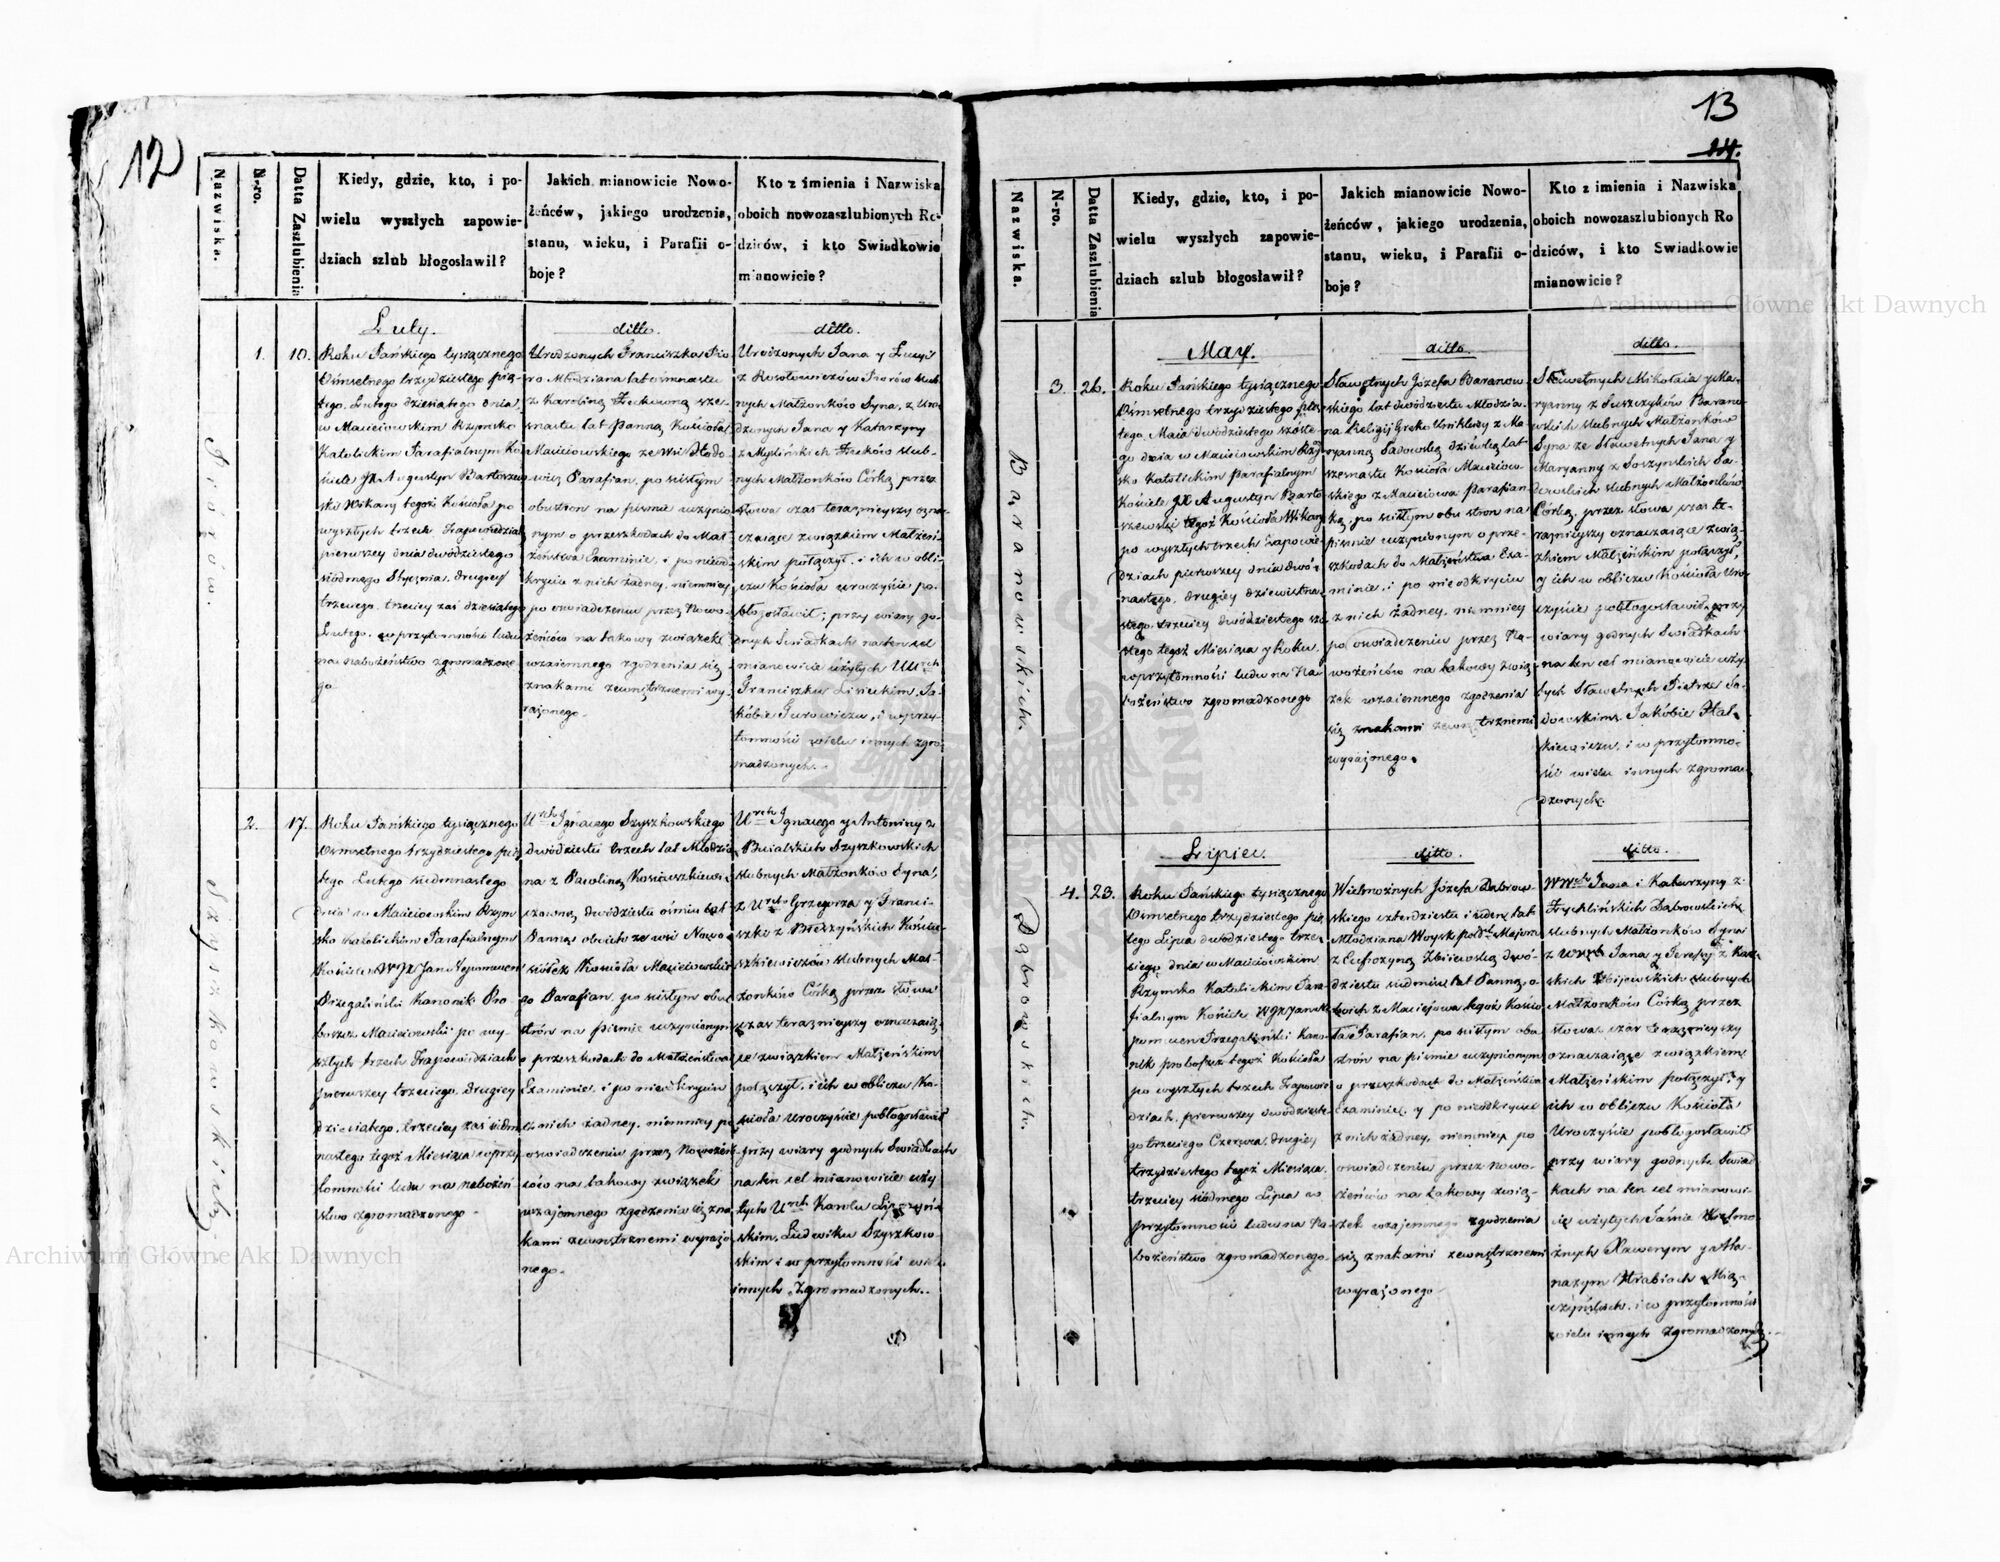 12
Nazwiska.
N-ro.
Datta Zaszlubienia
Kiedy, gdzie, kto, i po-
wielu wyszłych zapowie-
dziach szlub błogosławił?
Jakich mianowicie Nowo-
żeńców, jakiego urodzenia,
stanu, wieku, i Parafii o-
boje?
Kto z imienia i Nazwiska
oboich nowozaszlubionych Ro-
dziców, i kto Swiadkowie
mianowicie?
Luty.
ditto.
ditto.
1.
10.
Roku Pańskiego tysiącznego
Osmsetnego trzydziestego pią-
tego, Lutego dziesiątego dnia,
w Maciejowskim Rzymsko
Katolickim Parafialnym Ko
pierwszey dnia dwódziestego
siódmego Stycznia, drugiey
trzeciego, trzeciey zaś dziesiątego
Lutego. w przytomności ludu
na nabożeństwo zgromadzone-
go.
Urodzonych Franciszka Pio
ro Młodziana lat ośmnastu
Maciejowskiego ze wsi
Parafian, po ścisłym
obustron na piśmie uczynio
nym o przeszkodach do Mał
żeństwa Examinie, i po nieod-
kryciu z nich żadney, niemniey
po oswiadczeniu przez Nowo-
żeńców na takowy związek
wzaiemnego zgodzenia się
znakami zewnętrznemi wy-
rażonego.
Urodzonych Jana y Łucyi
nych Małżonków Syna, z Uro
dzonych Jana y Katarzyny
nych Małżonków Córką, przez
słowa czas teraznieyszy ozna-
czaiące związkiem Małżeń-
skim połączył, i ich w obli-
czu Kościoła uroczyście po-
błogosławił; przy wiary go-
dnych Swiadkach na ten cel
mianowicie użytych
tomności wielu innych zgro-
madzonych.
2.
17.
Szyszkowskich
Roku Pańskiego tysiącznego
Osmsetnego trzydziestego pią
tego Lutego siedmnastego
dnia w Maciejowskim Rzym
sko katolickim Parafialnym
Kościele WJX Jan Nepomucen
Przegaliński Kanonik Pro
boszcz Maciejowski po wy-
szłych trzech Zapowiedziach
pierwszey trzeciego, drugiey
dziesiątego, trzeciey zaś siedm
nastego tegoż Miesiąca w przy
tomności ludu na nabożeń
stwo zgromadzonego.
Urch Ignacego Szyszkowskiego
dwódziestu trzech lat Młodzia
na z Pauliną Kościuszkiewi
czowną dwódziestu ośmiu lat
Panną oboich ze wsi Nowo
siółek Kościoła Maciejowskie
go Parafian, po ścisłym obu
strón na piśmie uczynionym
o przeszkodach do Małżeństwa
Examinie, i po nieodkryciu
z nich żadney, niemniey po
oswiadczeniu przez Nowożeń
ców na takowy związek
wzajemnego zgodzenia się zna
kami zewnętrznemi wyrażo
nego.
Urch Ignacego y Antoniny z
Szyszkowskich
slubnych Małżonków Syna,
z Urch Grzegorza y Franci-
szki z
szkiewiczów slubnych Mał-
żonków Córką przez słowa
czas teraznieyszy oznaczaią
ce związkiem Małżeńskim
połączył, i ich w obliczu Ko-
ścioła uroczyście pobłogosławił
przy wiary godnych Swiadkach
na ten cel mianowicie uży
tych Urch Karolu
skim, Ludwiku Szyszkow-
skim i w przytomności wielu
innych Zgromadzonych.
13
14.
Nazwiska.
N-ro.
Datta Zaszlubienia
Kiedy, gdzie, kto, i po-
wielu wyszłych zapowie-
dziach szlub błogosławił?
Jakich mianowicie Nowo-
żeńców, jakiego urodzenia,
stanu, wieku, i Parafii o-
boje?
Kto z imienia i Nazwiska
oboich nowozaszlubionych Ro
dziców, i kto Swiadkowie
mianowicie?
May.
ditto.
ditto.
3.
26.
Baranowskich.
Roku Pańskiego tysiącznego
Osmsetnego trzydziestego pią
tego, Maia dwódziestego szóste-
go dnia w Maciejowskim Rzym
sko Katolickim Parafialnym
Kościele JX Augustyn Barto
szewski tegoż Kościoła Wikary
po wyszłych trzech Zapowie-
dziach pierwszey dnia dwó-
nastego, drugiey dziewiętna-
stego, trzeciey dwódziestego szó
stego tegoż Miesiąca y Roku,
w przytomności ludu na Na-
bożeństwo zgromadzonego
Sławetnych Józefa Baranow-
skiego lat dwódziestu Młodzia-
na Religij Greko Unickiey z Ma
ryanną Sadowską dziewką lat
szesnastu Kościoła Maciejow-
skiego z Maciejowa Parafian
ką, po ścisłym obu stron na
piśmie uczynionym o prze-
szkodach do Małżeństwa Exa-
minie, i po nieodkryciu
z nich żadney, niemniey
po oswiadczeniu przez No-
wożeńców na takowy zwią
zek wzaiemnego zgodzenia
się znakami zewnętrznemi
wyrażonego.
Sławetnych Mikołaia y Ma-
ryanny z Suszczyków Barano
wskich slubnych Małżonków
Syna ze Sławetnych Jana y
Maryanny z Soszynskich Sa-
dowskich slubnych Małżonków
Córką, przez słowa czas te-
raznieyszy oznaczaiące zwią-
zkiem Małżeńskim połączył,
y ich w obliczu Kościoła uro-
czyście pobłogosławił, przy
wiary godnych Swiadkach
na ten cel mianowicie uży-
tych Sławetnych Piotrze Sa-
dowskim, Jakóbie
i w przytomno-
ści wielu innych zgroma-
dzonych.
Lipiec.
ditto.
ditto.
4.
23.
Dąbrowskich.
Roku Pańskiego tysiącznego
Osmsetnego trzydziestego pią
tego Lipca dwódziestego trze-
ciego dnia w Maciejowskim
Rzymsko Katolickim Para
fialnym Kościele WJX Jan Ne
pomucen Przegaliński Kano-
nik proboszcz tegoż Kościoła
po wyszłych trzech Zapowie
dziach, pierwszey dwódzieste
go trzeciego Czerwca, drugiey
trzydziestego tegoż Miesiąca,
trzeciey siódmego Lipca w
przytomności ludu na Na-
bożeństwo zgromadzonego.
Wielmożnych Józefa Dąbrow-
skiego czterdziestu i ieden lat
Młodziana Woysk
z Eufrozyną Zbiiewską dwó-
dziestu siedmiu lat Panną, o-
boich z Maciejowa tegoż Kościo
ła Parafian, po ścisłym obu
strón na piśmie uczynionym
o przeszkodach do Małżeństwa
Examinie, y po nieodkryciu
z nich żadney, niemniey po
oswiadczeniu przez Nowo-
żeńców na takowy zwią-
zek wzajemnego zgodzenia
się znakami zewnętrznemi
wyrażonego.
WWch Jana i Katarzyny z
Trychlińskich Dąbrowskich
slubnych Małżonków Syna
z WWch Jana y Teressy z
skich Zbijewskich slubnych
Małżonków Córką przez
słowa czas teraznieyszy
oznaczaiące związkiem
Małżeńskim połączył, y
ich w obliczu Kościoła
Uroczyście pobłogosławił
przy wiary godnych Swiad
kach na ten cel mianowi-
cie użytych Jaśnie Wielmo
żnych Xawerym y Ata-
nazym Hrabiach Mią-
czyńskich, i w przytomności
wielu innych zgromadzonych.
Archiwum Główne Akt Dawnych
Archiwum Główne Akt Dawnych